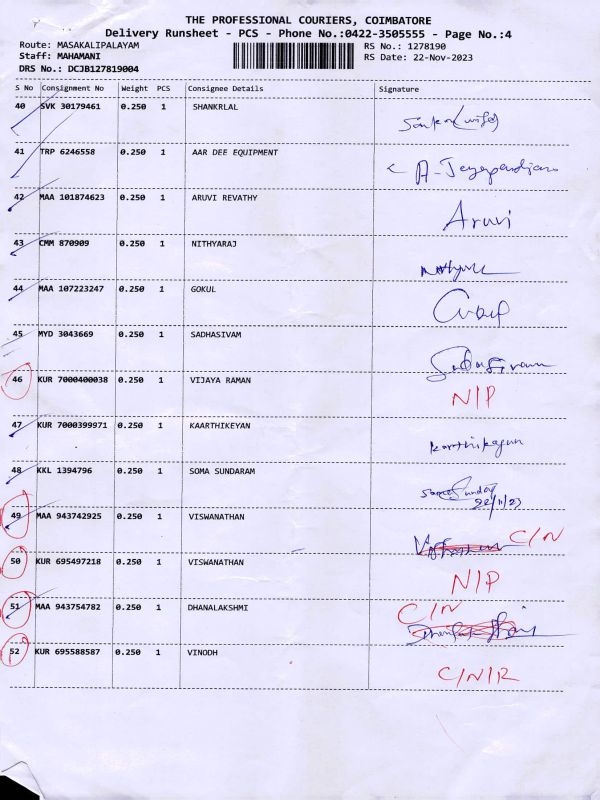 THE PROFESSIONAL COURIERS, COIMBATORE
Delivery Runsheet - PCS - Phone No.:0422-3505555 - Page No.:4
Route: MASAKALIPALAYAM RS No.: 1278190
Staff: MAHAMANI RS Date: 22-Nov-2023
DRS No.: DCJB127819004
S No Consignment No Weight PCS Consignee Details Signature
40 SVK 30179461 0.250 1 SHANKRLAL
Sankar(wife)
41 TRP 6246558 0.250 1 AAR DEE EQUIPMENT
A-Jeyapandian
42 MAA 101874623 0.250 1 ARUVI REVATHY
Aruvi
43 CMM 870909 0.250 1 NITHYARAJ
44 MAA 107223247 0.250 1 GOKUL
45 MYD 3043669 0.250 1 SADHASIVAM
46 KUR 7000400038 0.250 1 VIJAYA RAMAN
N/P
47 KUR 7000399971 0.250 1 KAARTHIKEYAN
karthikayun
48 KKL 1394796 0.250 1 SOMA SUNDARAM
22/11/23
49 MAA 943742925 0.250 1 VISWANATHAN
C/N
50 KUR 695497218 0.250 1 VISWANATHAN
N/P
51 MAA 943754782 0.250 1 DHANALAKSHMI
C/N
52 KUR 695588587 0.250 1 VINODH
C/N/R